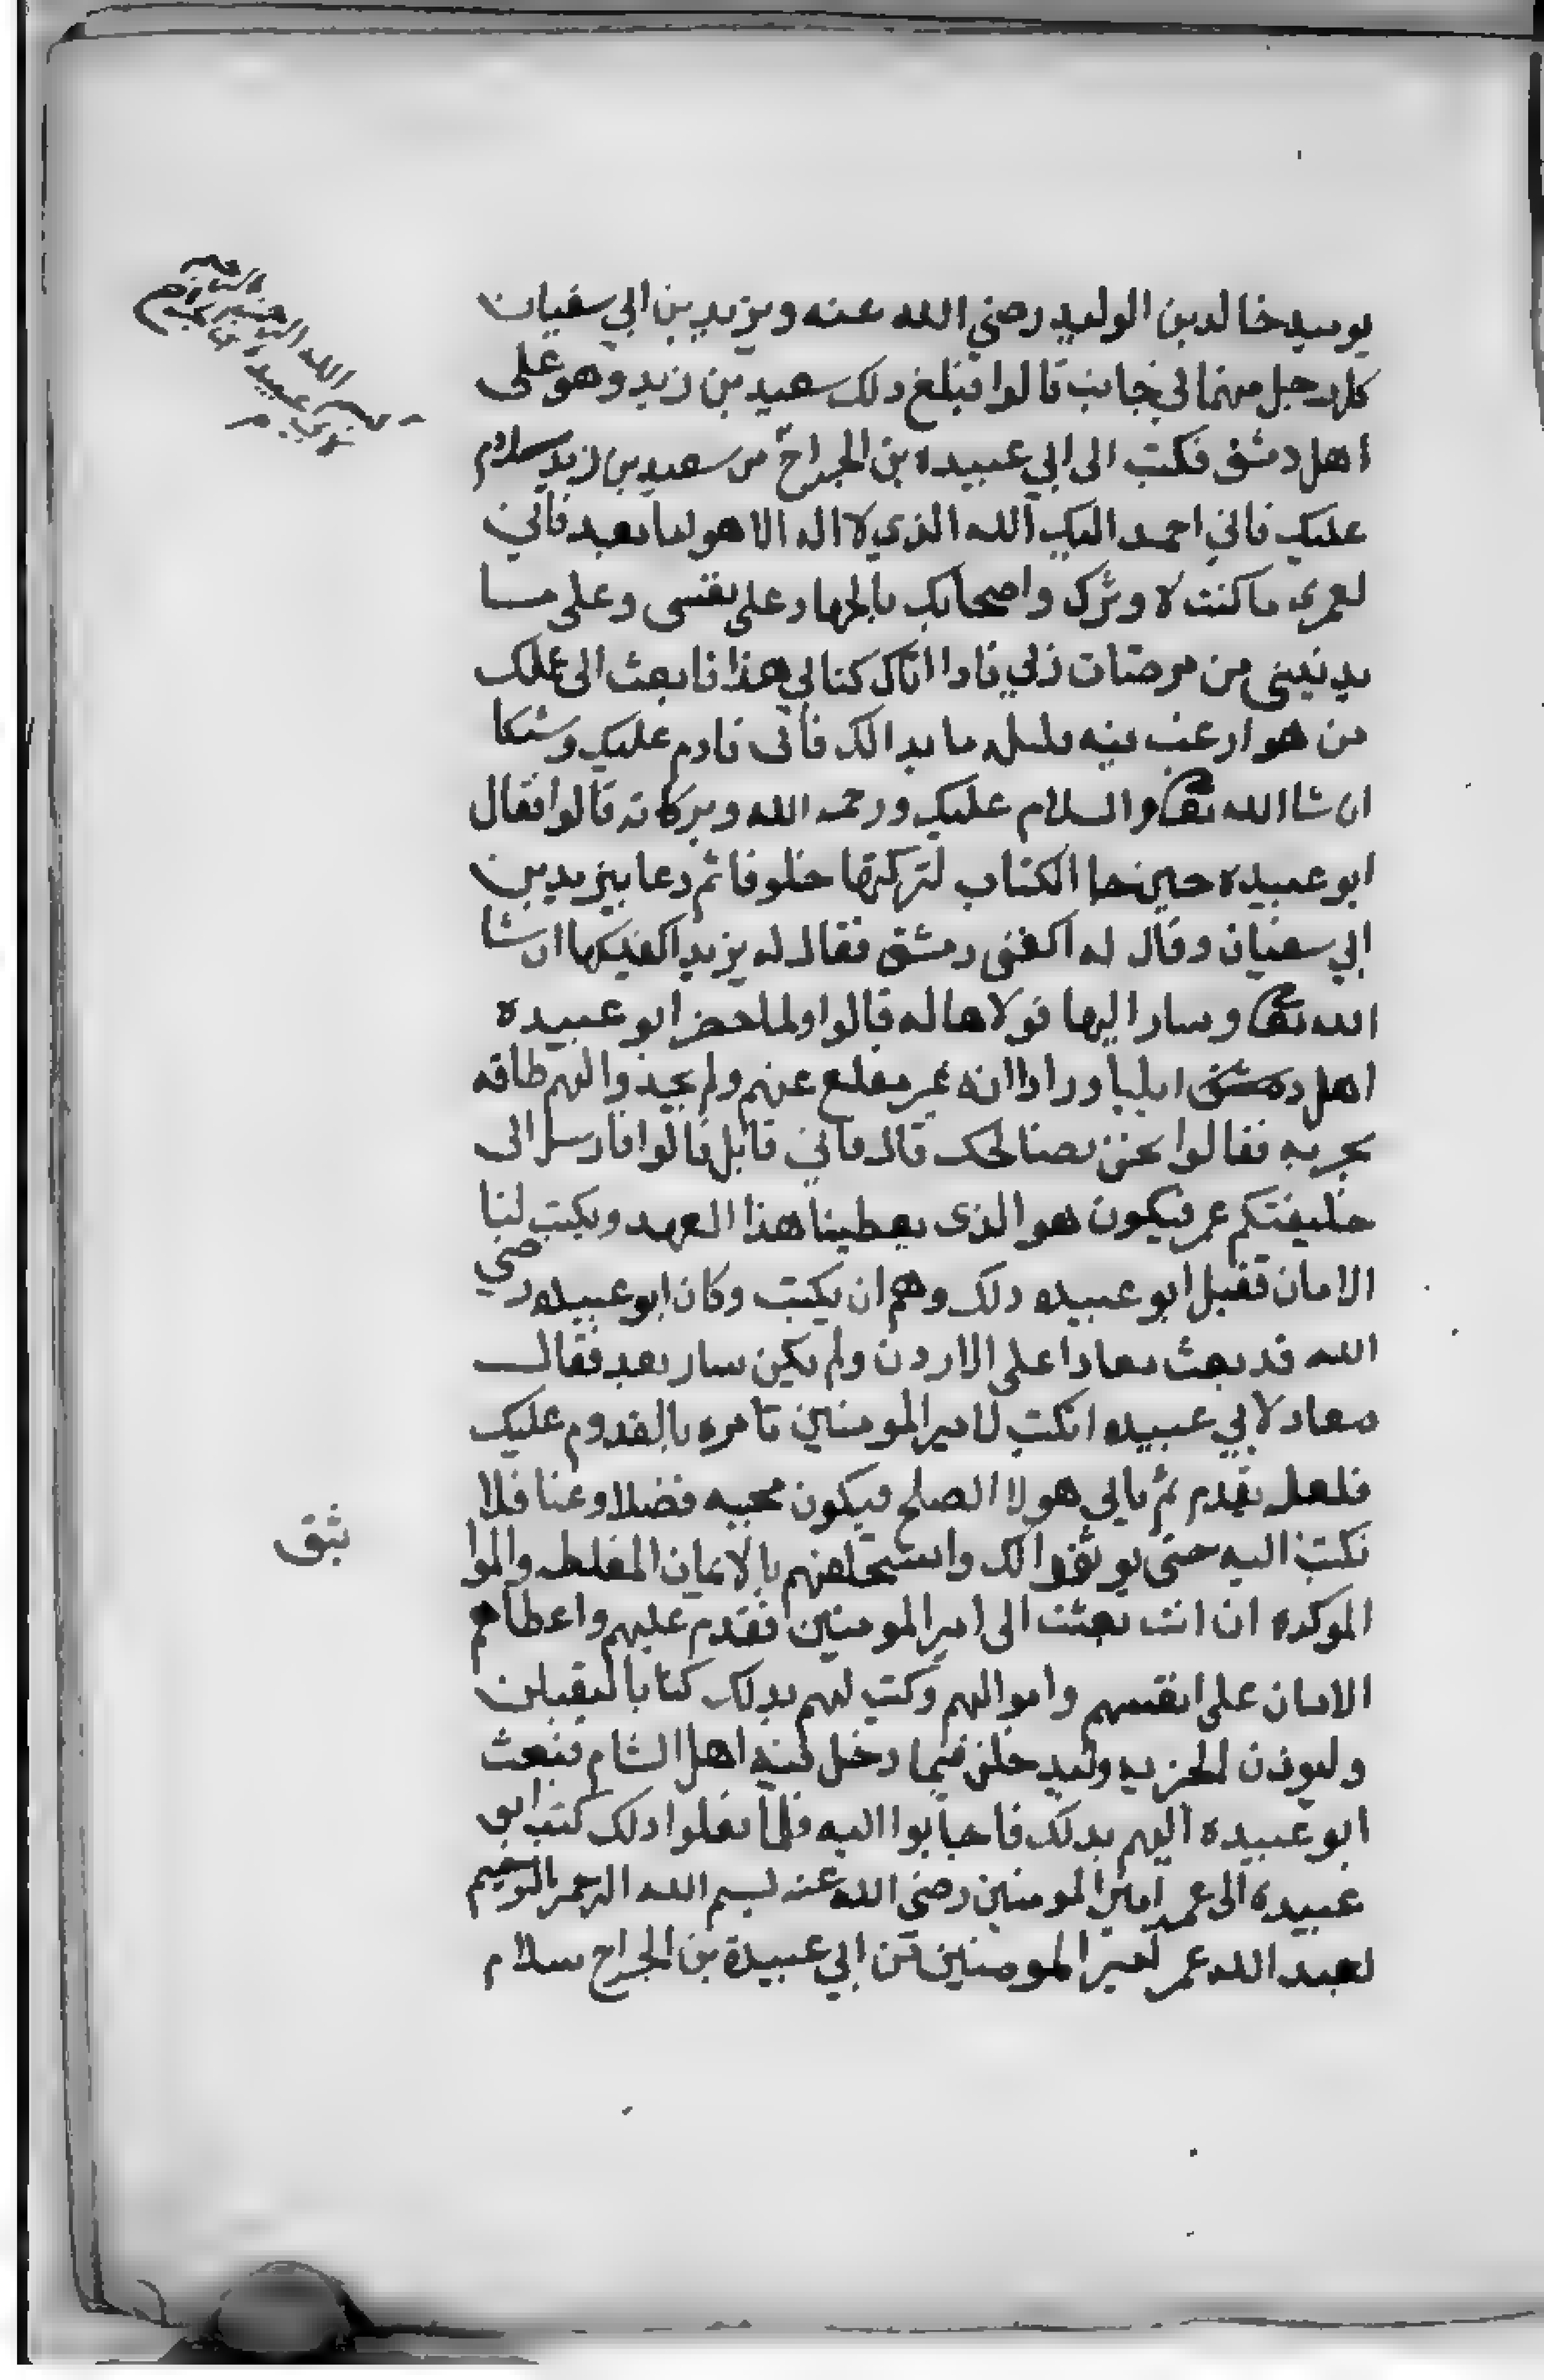 يوميد خالد بن الوليد رضي الله عنه ويزيد بن ابي سفيان
كل رجل منهما في جانب قالوا فبلغ ذلك سعيد بن زيد وهو على
اهل دمشق فكتب الى ابي عبيده بن الجراح من سعيد بن زيد سلام
عليك فاني احمد اليك الله الذي لا اله الا هو اما بعد فاني
لعمري ما كنت لاوثرك واصحابك بالجهاد على نفسي وعلى ما
يدنيني من مرضات ربي فاذا اتاك كتابي هذا فابعث الى عملك
من هو ارغب فيه مني ما بدا لك فاني قادم عليك وشيكا
ان شا الله تعالى والسلام عليك ورحمه الله وبركاته قالوا فقال
ابو عبيده حين جا الكتاب لتركتها خلوفا ثم دعا يزيد بن
ابي سفيان وقال له اكفني دمشق فقال له يزيد اكفيكها ان شا
الله تعالى وسار اليها فولاها له قالوا ولما حضر ابو عبيده
اهل دمشق ايليا وراوا انه غير مقلع عنهم ولم يجدوا لهم طاقه
بحربه فقالوا نحن نصالحك قال فاني قابل قالوا فارسل الى
خليفتكم عمر فيكون هو الذي يعطينا هذا العهد ويكتب لنا
الامان فقبل ابو عبيده ذلك وهم ان يكتب وكان ابو عبيده رضي
الله قد بعث معاذا على الاردن ولم يكن سار بعد فقال
معاذ لابي عبيده اتكتب لامير المومنين تامره بالقدوم عليك
فلعله يقدم ثم يابي هولا الصلح فيكون مجيه فضلا وعنا فلا
تكتب اليه حتى يوثقوا لك واستحلفهم بالايمان المغلظه والموا
ثيق
الموكده ان انت بعثت الى امير المومنين فقدم عليهم واعطاهم
الامان على انفسهم واموالهم وكتب لهم بذلك كتابا ليقبلن
وليودن الجزيه وليدخلن فيما دخل فيه اهل الشام فبعث
ابو عبيده اليهم بذلك فاجابوا اليه فلما فعلوا ذلك كتب ابو
عبيدة الى عمر امير المومنين رضي الله عنه بسم الله الرحمن الرحيم
لعبد الله عمر امير المومنين من ابي عبيدة بن الجراح سلام